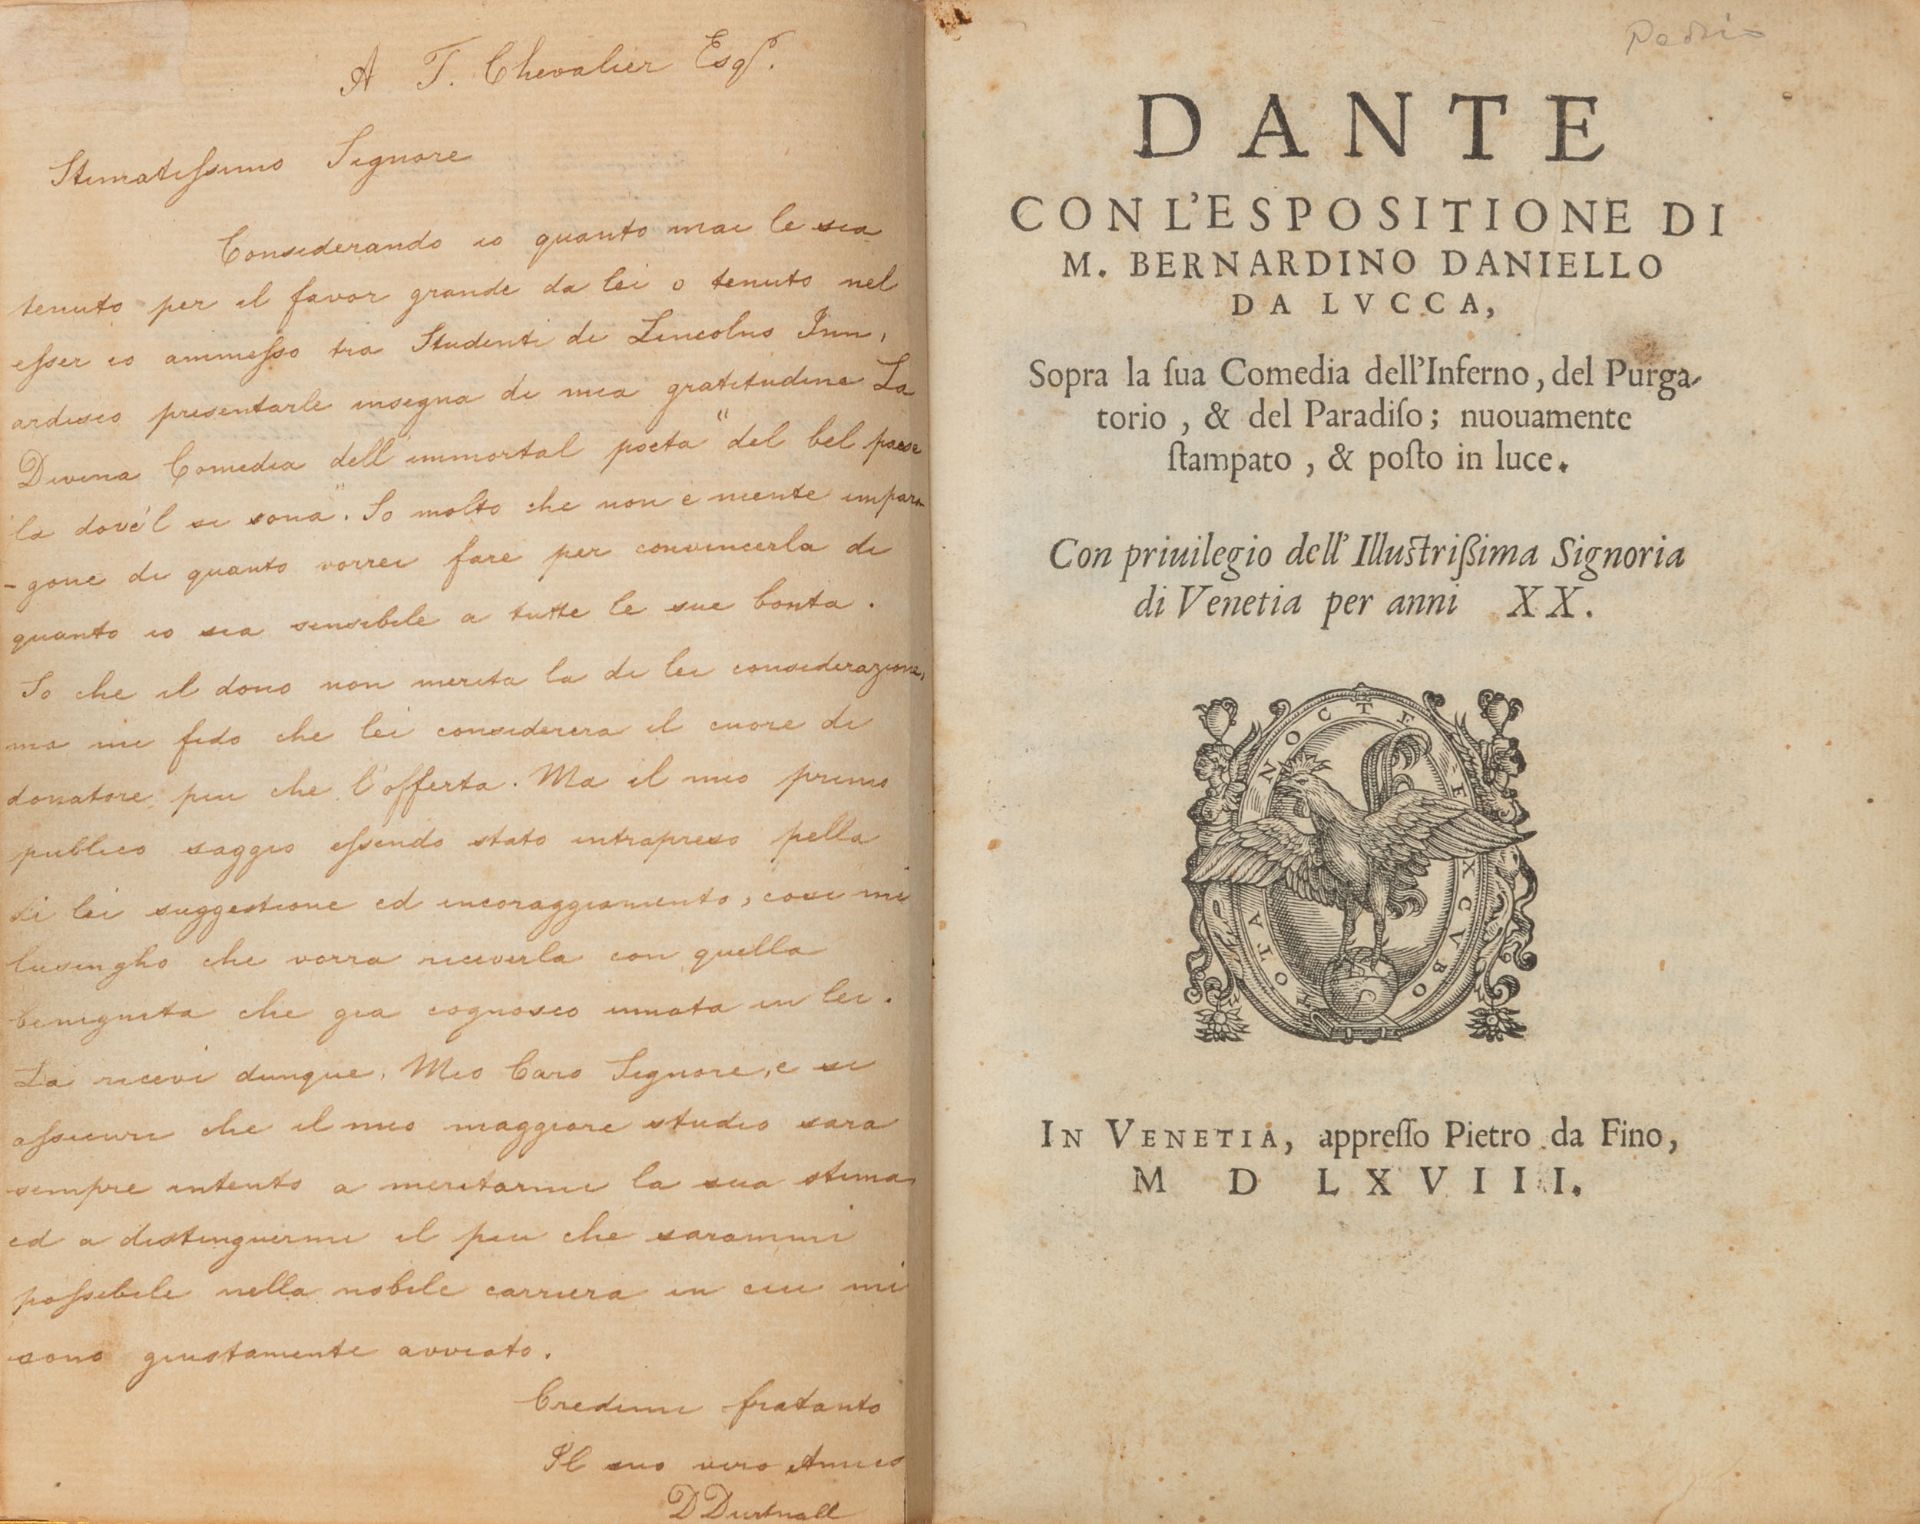 A T. Chevalier Esqr.
Stimatiſsimo Signore
Considerando io quanto mai le sia
tenuto per il favor grande da lei o tenuto nel
eſser io ammeſso tra Studenti di Lincolns Inn,
ardisco presentarle insegna di mia gratitudine La
Divina Comedia dell'immortal poeta "del bel paese
la dove'l si sona". So molto che non e niente inpara
-gone di quanto vorrei fare per convincerla di
quanto io sia sensibile a tutte le sue bonta.
So che il dono non merita la di lei considerazione,
ma mi fido che lei considerera il cuore di
donatore piu che l'offerta. Ma il mio primo
publico saggio eſsendo stato intrapreso pella
di lei suggestione ed incoraggiamento, cosi mi
lusingho che vorra riceverla con quella
benignita che gia cognosco innata in lei.
La ricevi dunque, Mio Caro Signore, e si
aſsicuri che il mio maggiore studio sara
sempre intento a meritarmi la sua stima
ed a distinguermi il piu che sarammi
poſsibile nella nobile carriera in cui mi
sono giustamente avviato.
Credimi fratanto
Il suo vero Amico
D Durtnall
DANTE
CON L'ESPOSITIONE DI
M. BERNARDINO DANIELLO
DA LVCCA,
Sopra la ſua Comedia dell'Inferno, del Purga-
torio, & del Paradiſo; nuouamente
ſtampato, & poſto in luce.
Con priuilegio dell'Illuſtriſsima Signoria
di Venetia per anni XX.
NOCTE EXCVBO
HOTA
IN VENETIA, appreſſo Pietro da Fino,
M D LXVIII.